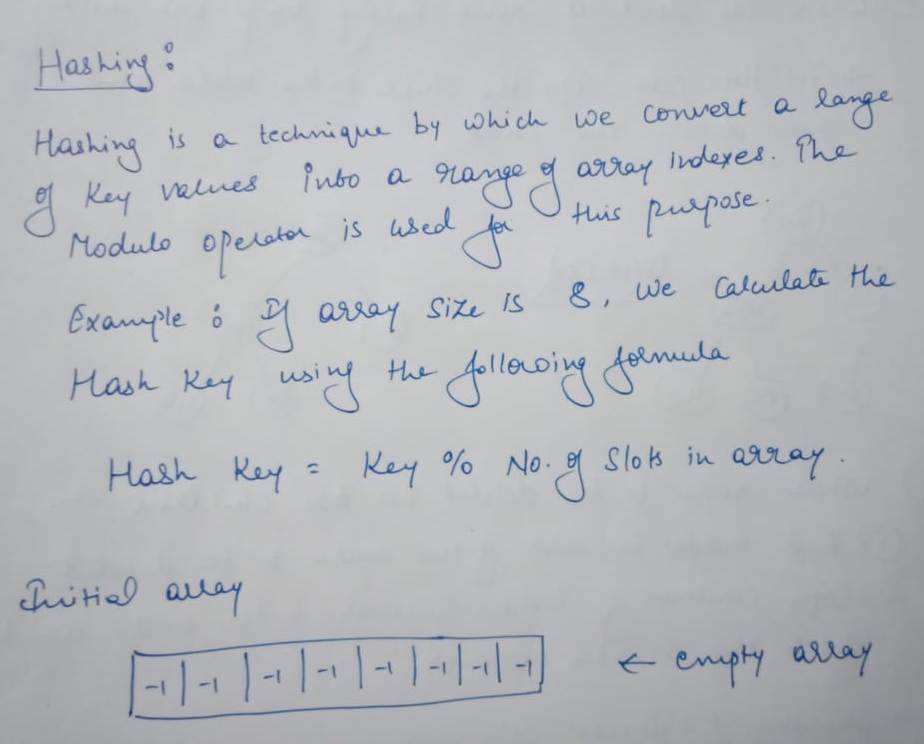 Hashing:
Hashing is a technique by which we convert a range
of key values into a range of array indexes. The
Modulo operator is used for this purpose.
Example : If array size is 8, we calculate the
Hash key using the following formula
Hash key = key % No. of slots in array.
Initial array
-1 | -1 | -1 | -1 | -1 | -1 | -1 | -1 ← empty array